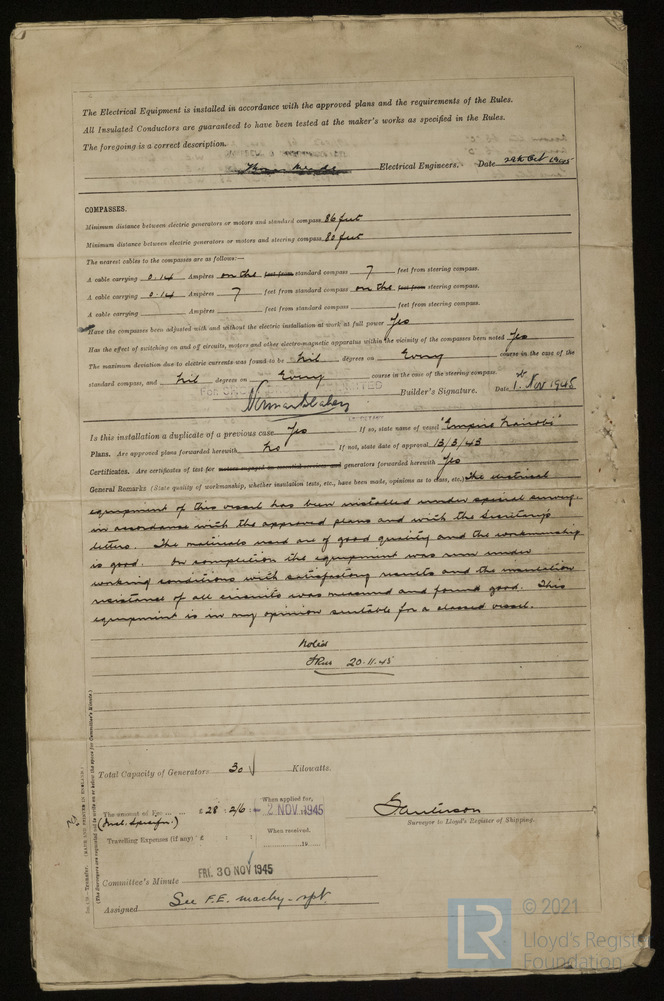 The Electrical Equipment is installed in accordance with the approved plans and the requirements of the Rules.
All Insulated Conductors are guaranteed to have been tested at the maker's works as specified in the Rules.
The foregoing is a correct description.
Electrical Engineers. Date 29th Oct 1945
COMPASSES.
Minimum distance between electric generators or motors and standard compass 86 feet
Minimum distance between electric generators or motors and steering compass 80 feet
The nearest cables to the compasses are as follows:—
A cable carrying 0.14 Ampères on the feet from standard compass 7 feet from steering compass.
A cable carrying 0.14 Ampères 7 feet from standard compass on the feet from steering compass.
A cable carrying Ampères feet from standard compass feet from steering compass.
Have the compasses been adjusted with and without the electric installation at work at full power Yes
Has the effect of switching on and off circuits, motors and other electro-magnetic apparatus within the vicinity of the compasses been noted Yes
The maximum deviation due to electric currents was found to be Nil degrees on Every course in the case of the
standard compass, and Nil degrees on Every course in the case of the steering compass.
LIMITED
Builder's Signature. Date 1st Nov 1945
SECRETARY
Is this installation a duplicate of a previous case Yes If so, state name of vessel "Empire Nairobi"
Plans. Are approved plans forwarded herewith No If not, state date of approval 13/3/43
Certificates. Are certificates of test for motors engaged on essential services and generators forwarded herewith Yes
General Remarks (State quality of workmanship, whether insulation tests, etc., have been made, opinions as to class, etc.) The electrical
equipment of this vessel has been installed under special survey
in accordance with the approved plans and with the Secretary's
letters. The materials used are of good quality and the workmanship
is good. On completion the equipment was run under
working conditions with satisfactory results and the insulation
resistance of all circuits was measured and found good. This
equipment is in my opinion suitable for a classed vessel.
Noted
20.11.45
Total Capacity of Generators 30 Kilowatts.
The amount of Fee ... ... £ 28 : 2/6 : When applied for, 2 NOV 1945
Travelling Expenses (if any) £ : : When received. 19
Surveyor to Lloyd's Register of Shipping.
Committee's Minute FRI. 30 NOV 1945
Assigned See F.E. machy. rpt.
(The Surveyors are requested not to write on or below the space for Committee's Minute.)
© 2021
LR
Lloyd's Register
Foundation